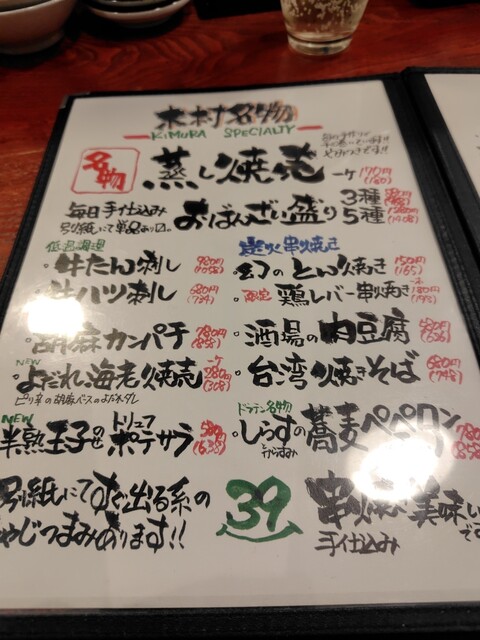 木村名物
KIMURA SPECIALTY
名物
蒸し焼売 一ヶ 170円
毎日手仕込み
おばんざい盛り 3種
5種
低温調理
・牛たん刺し 980円
牛ハツ刺し 680円(734)
胡麻カンパチ 780円(858)
NEW
よだれ海老焼売
ピリ辛の胡麻ベースのよだれダレ
NEW
半熟玉子のせ トリュフポテサラ
炭火串焼き
・幻のとん焼き 150円(165)
・限定 鶏レバー串焼き 180円
・酒場の肉豆腐
・台湾焼きそば 680円(748)
ドラゴン名物
・しらすの蕎麦ペペロン 780(858
別紙にてすぐ出る系の
やじつまみあります!!
39
串焼き美味し
手仕込みです